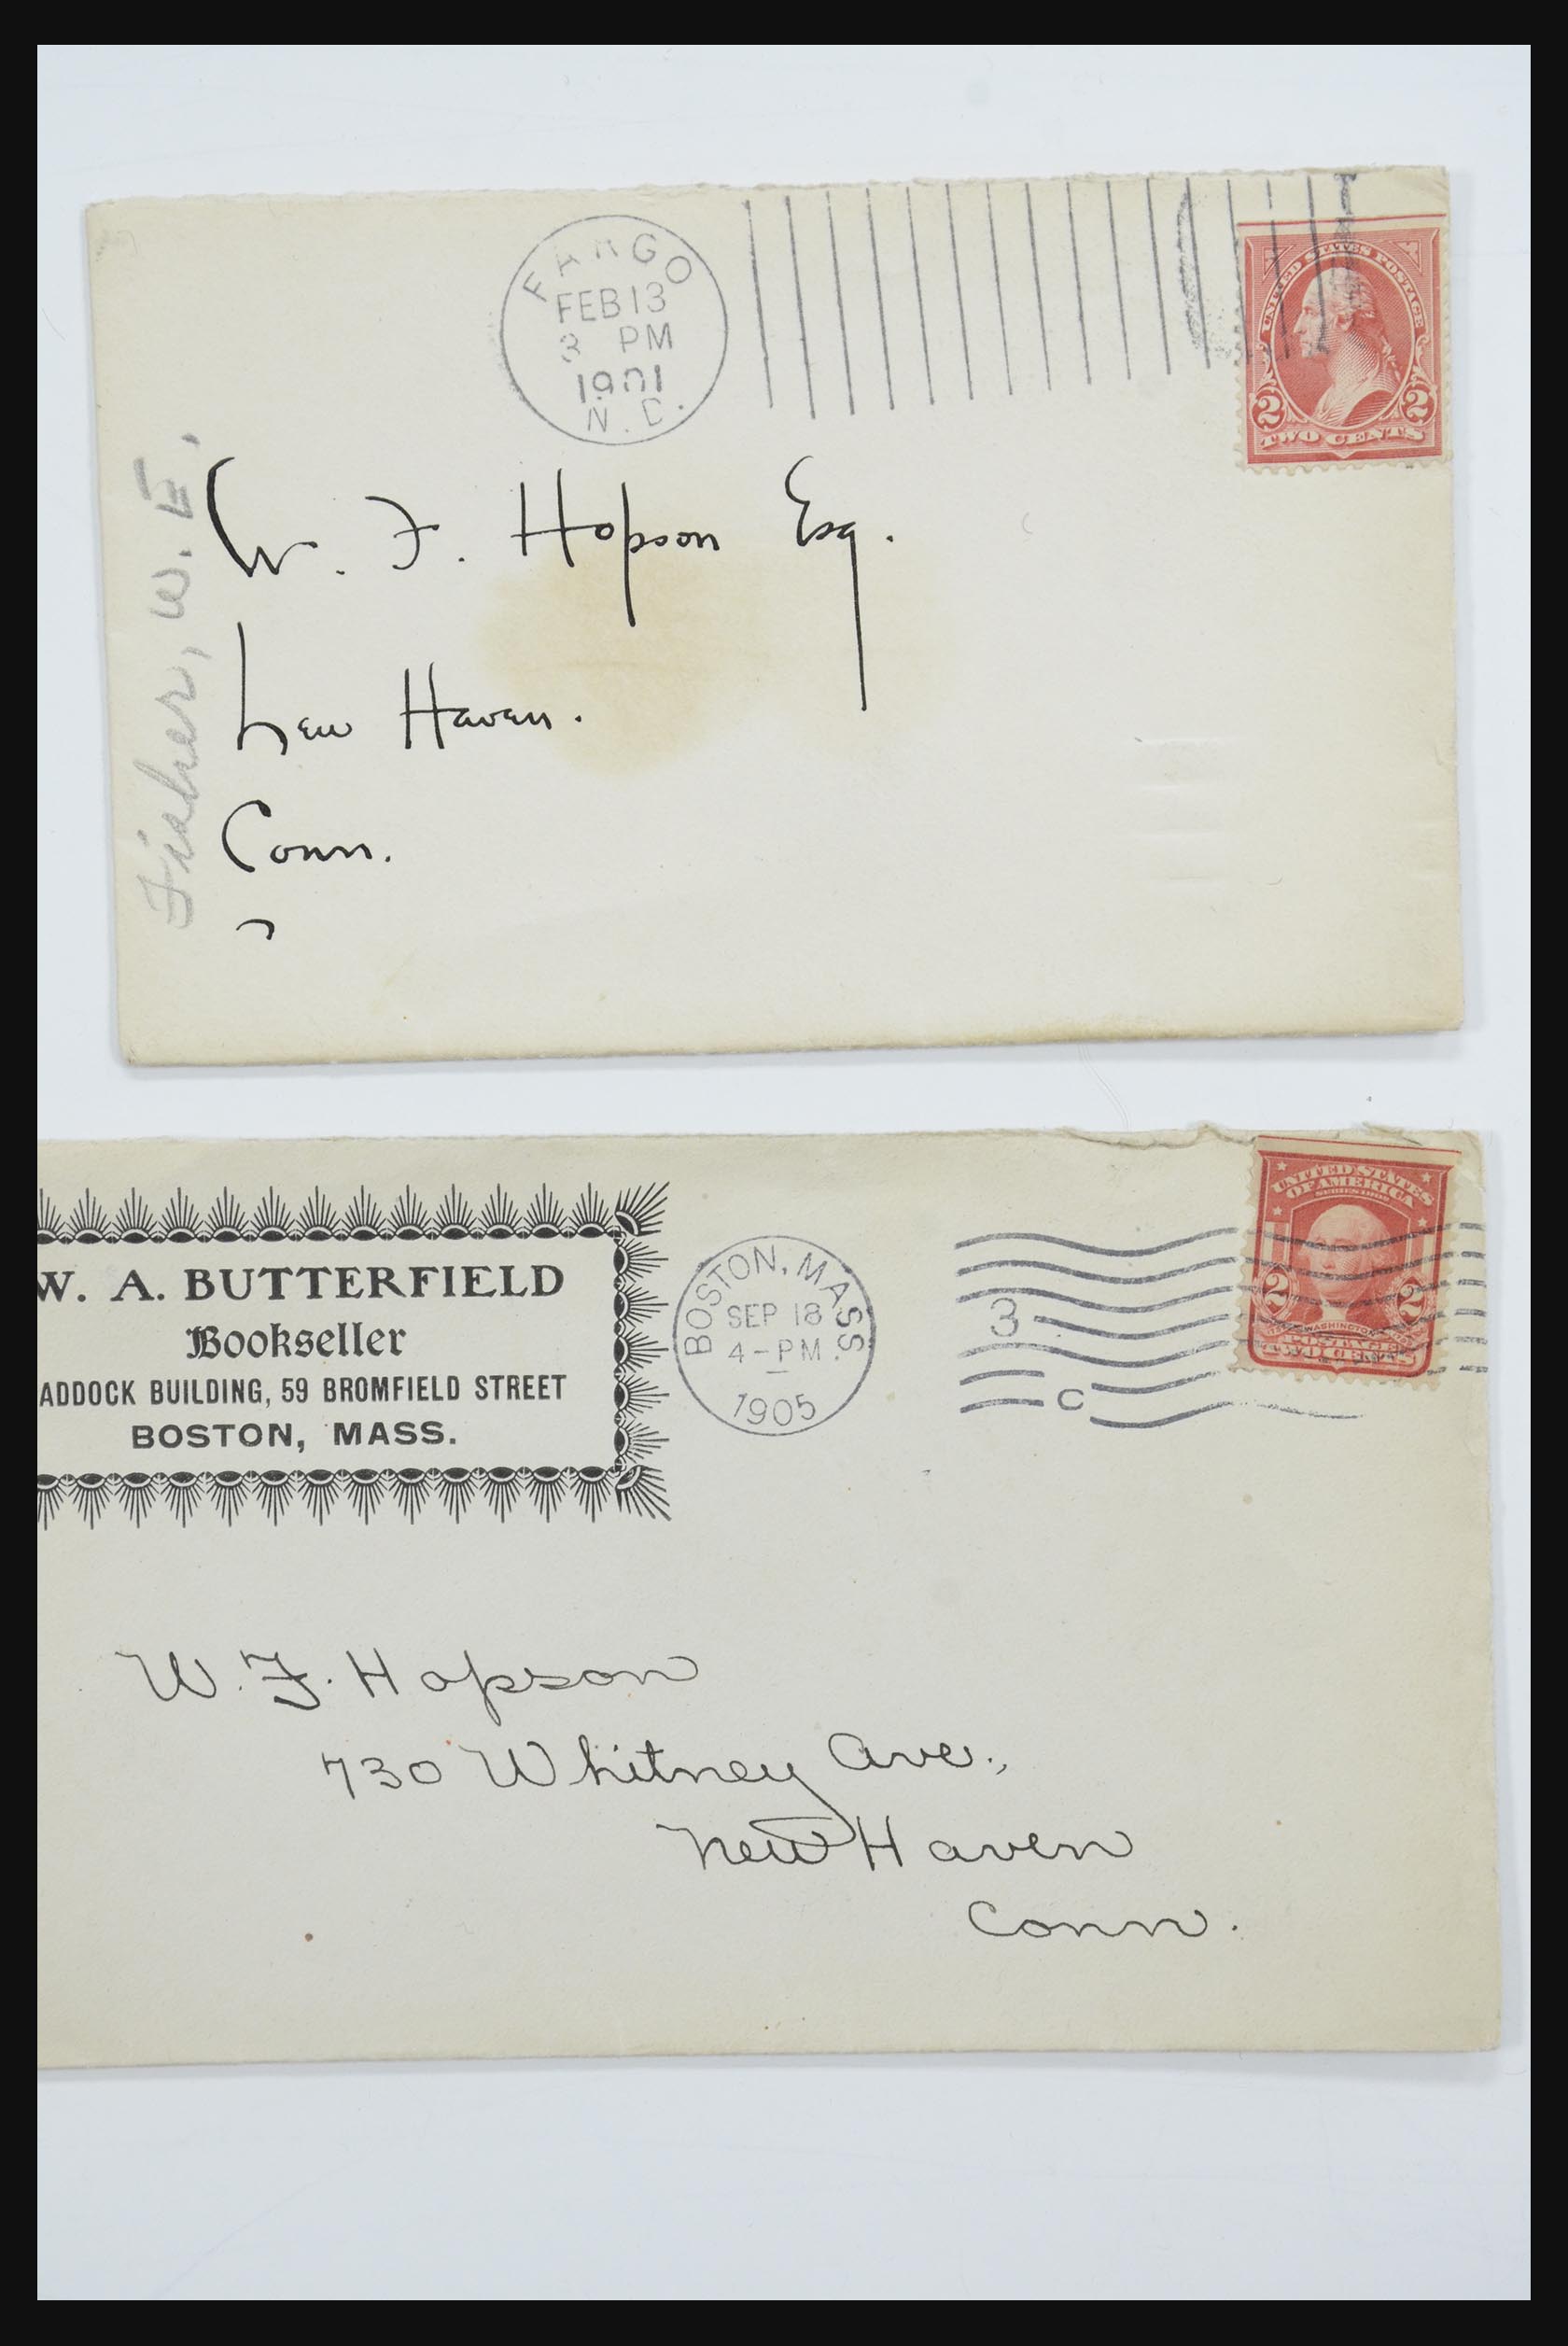 FARGO
FEB 13
3 PM
1901
N. D.
UNITED STATES POSTAGE
2 2
TWO CENTS
Fisher, W. E.
W. F. Hopson Esq.
New Haven.
Conn.
W. A. BUTTERFIELD
Bookseller
ADDOCK BUILDING, 59 BROMFIELD STREET
BOSTON, MASS.
BOSTON, MASS.
SEP 18
4-PM
1905
3
C
UNITED STATES
OF AMERICA
SERIES 1902
2 2
WASHINGTON
POSTAGE
TWO CENTS
W. F. Hopson
730 Whitney Ave.,
New Haven
Conn.